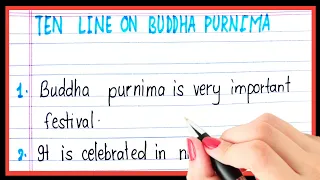 TEN LINE ON BUDDHA PURNIMA
1. Buddha purnima is very important
festival.
2. It is celebrated in